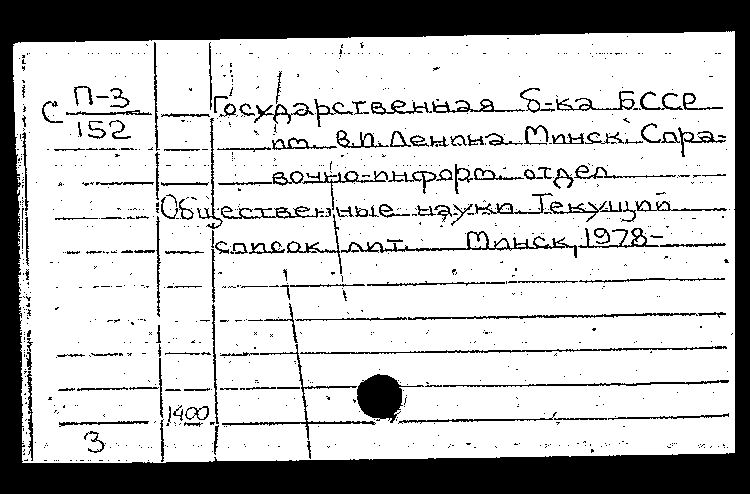 С П-3
152
Государственная б-ка БССР
им. В.И. Ленина. Минск. Спра-
вочно-информ. отдел
Общественные науки. Текущий
список лит. Минск, 1978-
1400
3